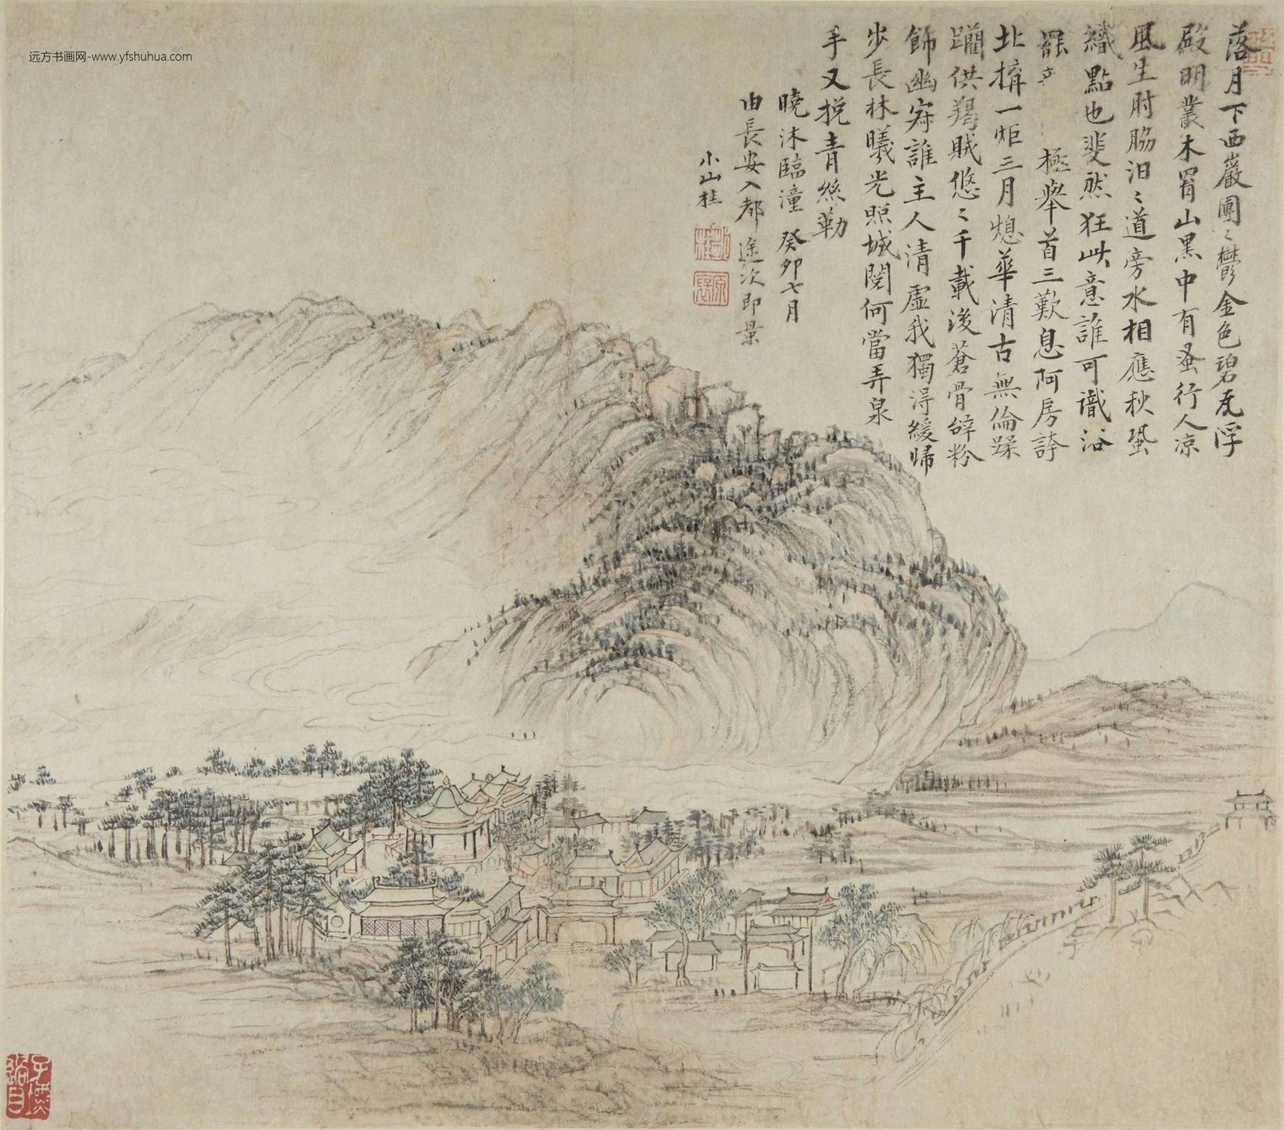 远方书画网-www.yfshuhua.com
落月下西巖團〻鬱金色碧瓦浮
殿明叢木罥山黑中有蚤行人凉
風生肘腋汨〻道旁水相應秋蛩
織點也斐然狂此意誰可識浴
罷 極舉首三歎息阿房誇
北擠一炬三月熄華清古無倫蹂
躪供羯賊悠〻千載後蒼骨辞粉
飾幽穿誰主人清虛我獨得緩歸
步長林曦光照城閾何當弄泉
手又挽青絲勒
曉沐臨潼 癸卯七月
由長安入都途次即景
小山桂